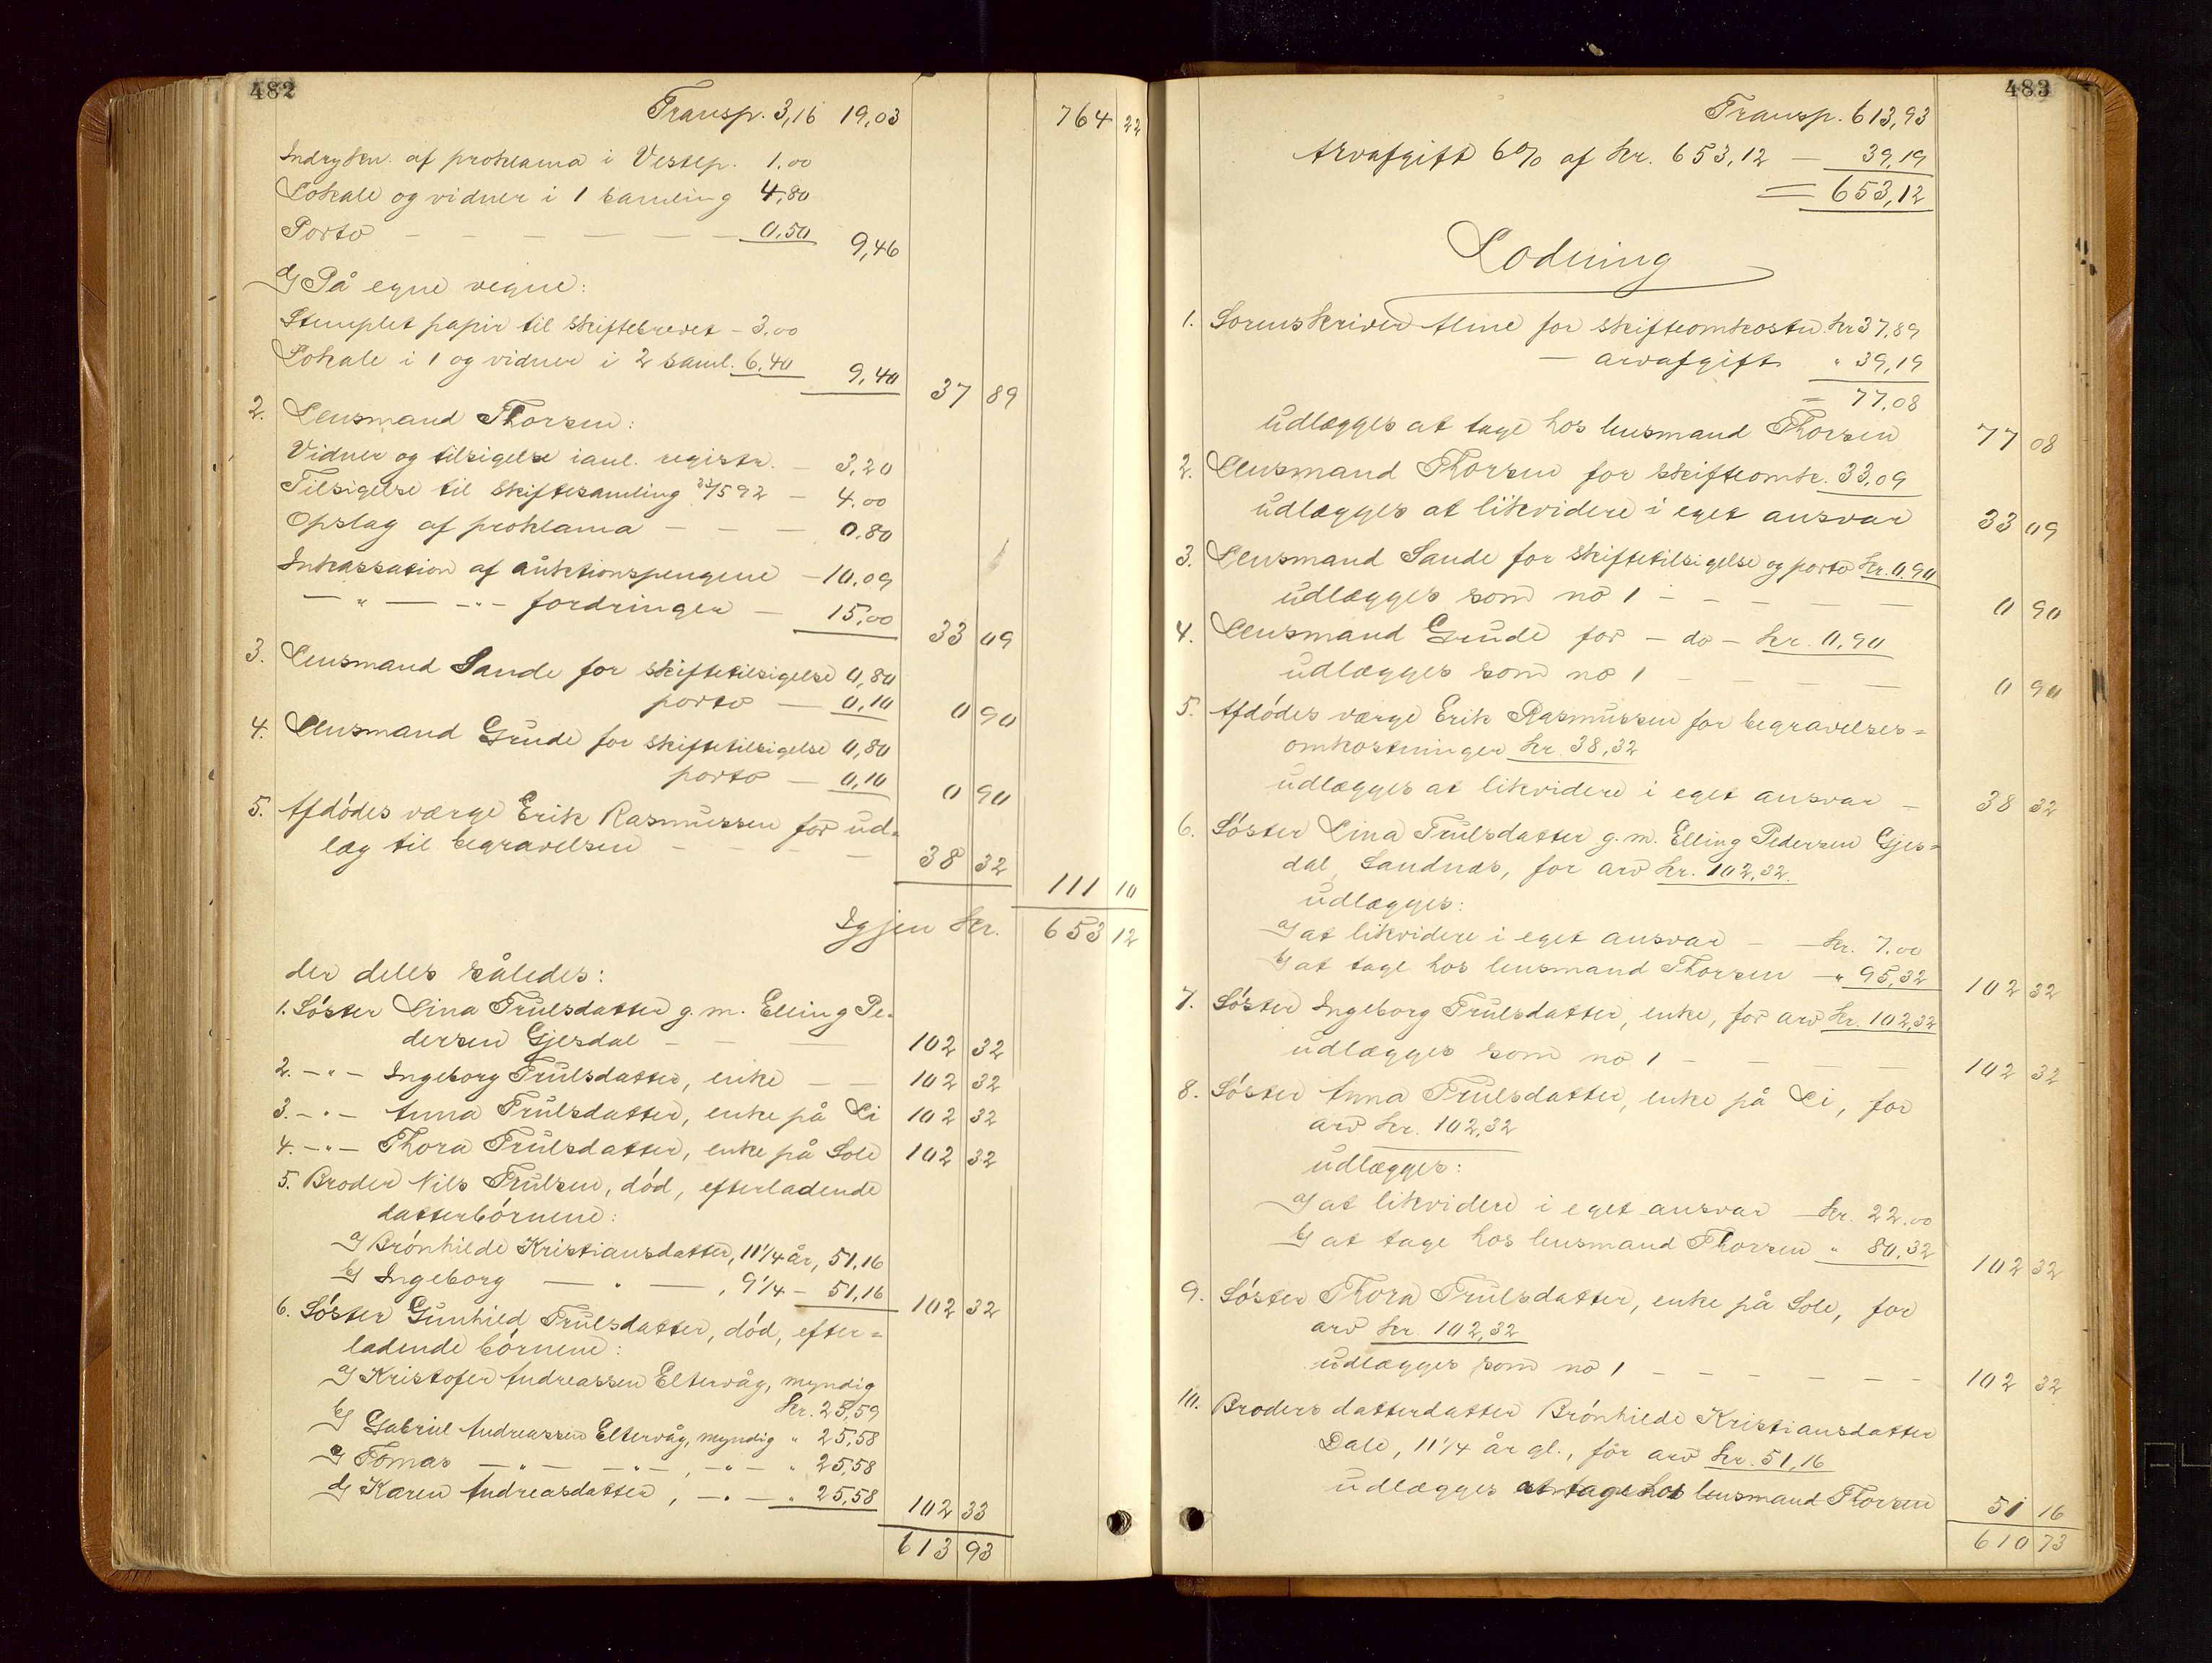 482
Transp. 3,16 19,03 764 22
Indrykn. af proklama i Vestlp. 1.00
Lokale og vidner i 1 samling 4,80
Porto — — — — — 0.50 9,46
d) På egne vegne:
Stemplet papir til skiftebrevet — 3.00
Lokale i 1 og vidner i 2 saml. 6,40 9,40 37 89
2. Lensmand Thorsen:
Vidner og tilsigelse i anl. registr. — 3,20
Tilsigelse til skiftesamling 92 — 4.00
Opslag af proklama — — — 0.80
Inkassation af auktionspengene — 10.09
— " — — " — fordringer — 15.00 33 09
3. Lensmand Sande for skiftetilsigelse 0,80
porto — 0,10 0 90
4. Lensmand Grude for skiftetilsigelse 0,80
porto — 0,10 0 90
5. Afdödes værge Erik Rasmussen for ud=
læg til begravelsen — — — — 38 32
111 10
Igjen Kr. 653 12
der deles således:
1. Söster Lina Trulsdatter g. m. Elling Pe-
dersen Gjesdal — — — 102 32
2. — " — Ingeborg Trulsdatter, enke — — 102 32
3. — " — Anna Trulsdatter, enke på Li 102 32
4. — " — Thora Trulsdatter, enke på Sole 102 32
5. Broder Nils Trulsen, död, efterladende
datterbörnene:
a) Brönhilde Kristiansdatter, 11 1/4 år, 51,16
b) Ingeborg — " — , 9 1/4 — 51,16 102 32
6. Söster Gunhild Trulsdatter, död, efter=
ladende börnene:
a) Kristofer Andreassen Eltervåg, myndig
Kr. 25,59
b) Gabriel Andreassen Eltervåg, myndig " 25,58
c) Tomas — " — — " — , — " — " 25,58
d) Karen Andreasdatter, — " — " 25,58 102 33
613 93
483
Transp. 613,93
Arvafgift 6% af Kr. 653,12 — 39,19
= 653,12
Lodning
1. Sorenskriver Aline for skifteomkostn. Kr 37,89
— arvafgift " 39,19
= 77,08
udlægges at tage hos lensmand Thorsen 77 08
2. Lensmand Thorsen for skifteomk. 33,09
udlægges at likvidere i eget ansvar 33 09
3. Lensmand Sande for skiftetilsigelse og porto Kr. 0,90
udlægges som no 1 — — — — — 0 90
4. Lensmand Grude for — do — Kr. 0,90
udlægges som no 1 — — — — 0 90
5. Afdödes værge Erik Rasmussen for begravelses=
omkostninger Kr. 38,32
udlægges at likvidere i eget ansvar — 38 32
6. Söster Lina Trulsdatter g. m. Elling Pedersen Gjes=
dal, Sandnæs, for arv Kr. 102,32.
udlægges:
a) at likvidere i eget ansvar — — Kr. 7.00
b) at tage hos lensmand Thorsen — " 95,32 102 32
7. Söster Ingeborg Trulsdatter, enke, for arv Kr. 102,32
udlægges som no 1 — — — — 102 32
8. Söster Anna Trulsdatter, enke på Li, for
arv Kr. 102,32
udlægges:
a) at likvidere i eget ansvar — Kr. 22.00
b) at tage hos lensmand Thorsen " 80,32 102 32
9. Söster Thora Trulsdatter, enke på Sole, for
arv Kr 102,32
udlægges som no 1 — — — — — — 102 32
10. Broders datterdatter Brönhilde Kristiansdatter
Dale, 11 1/4 år gl., for arv Kr. 51,16
udlægges at tage hos lensmand Thorsen 51 16
610 73